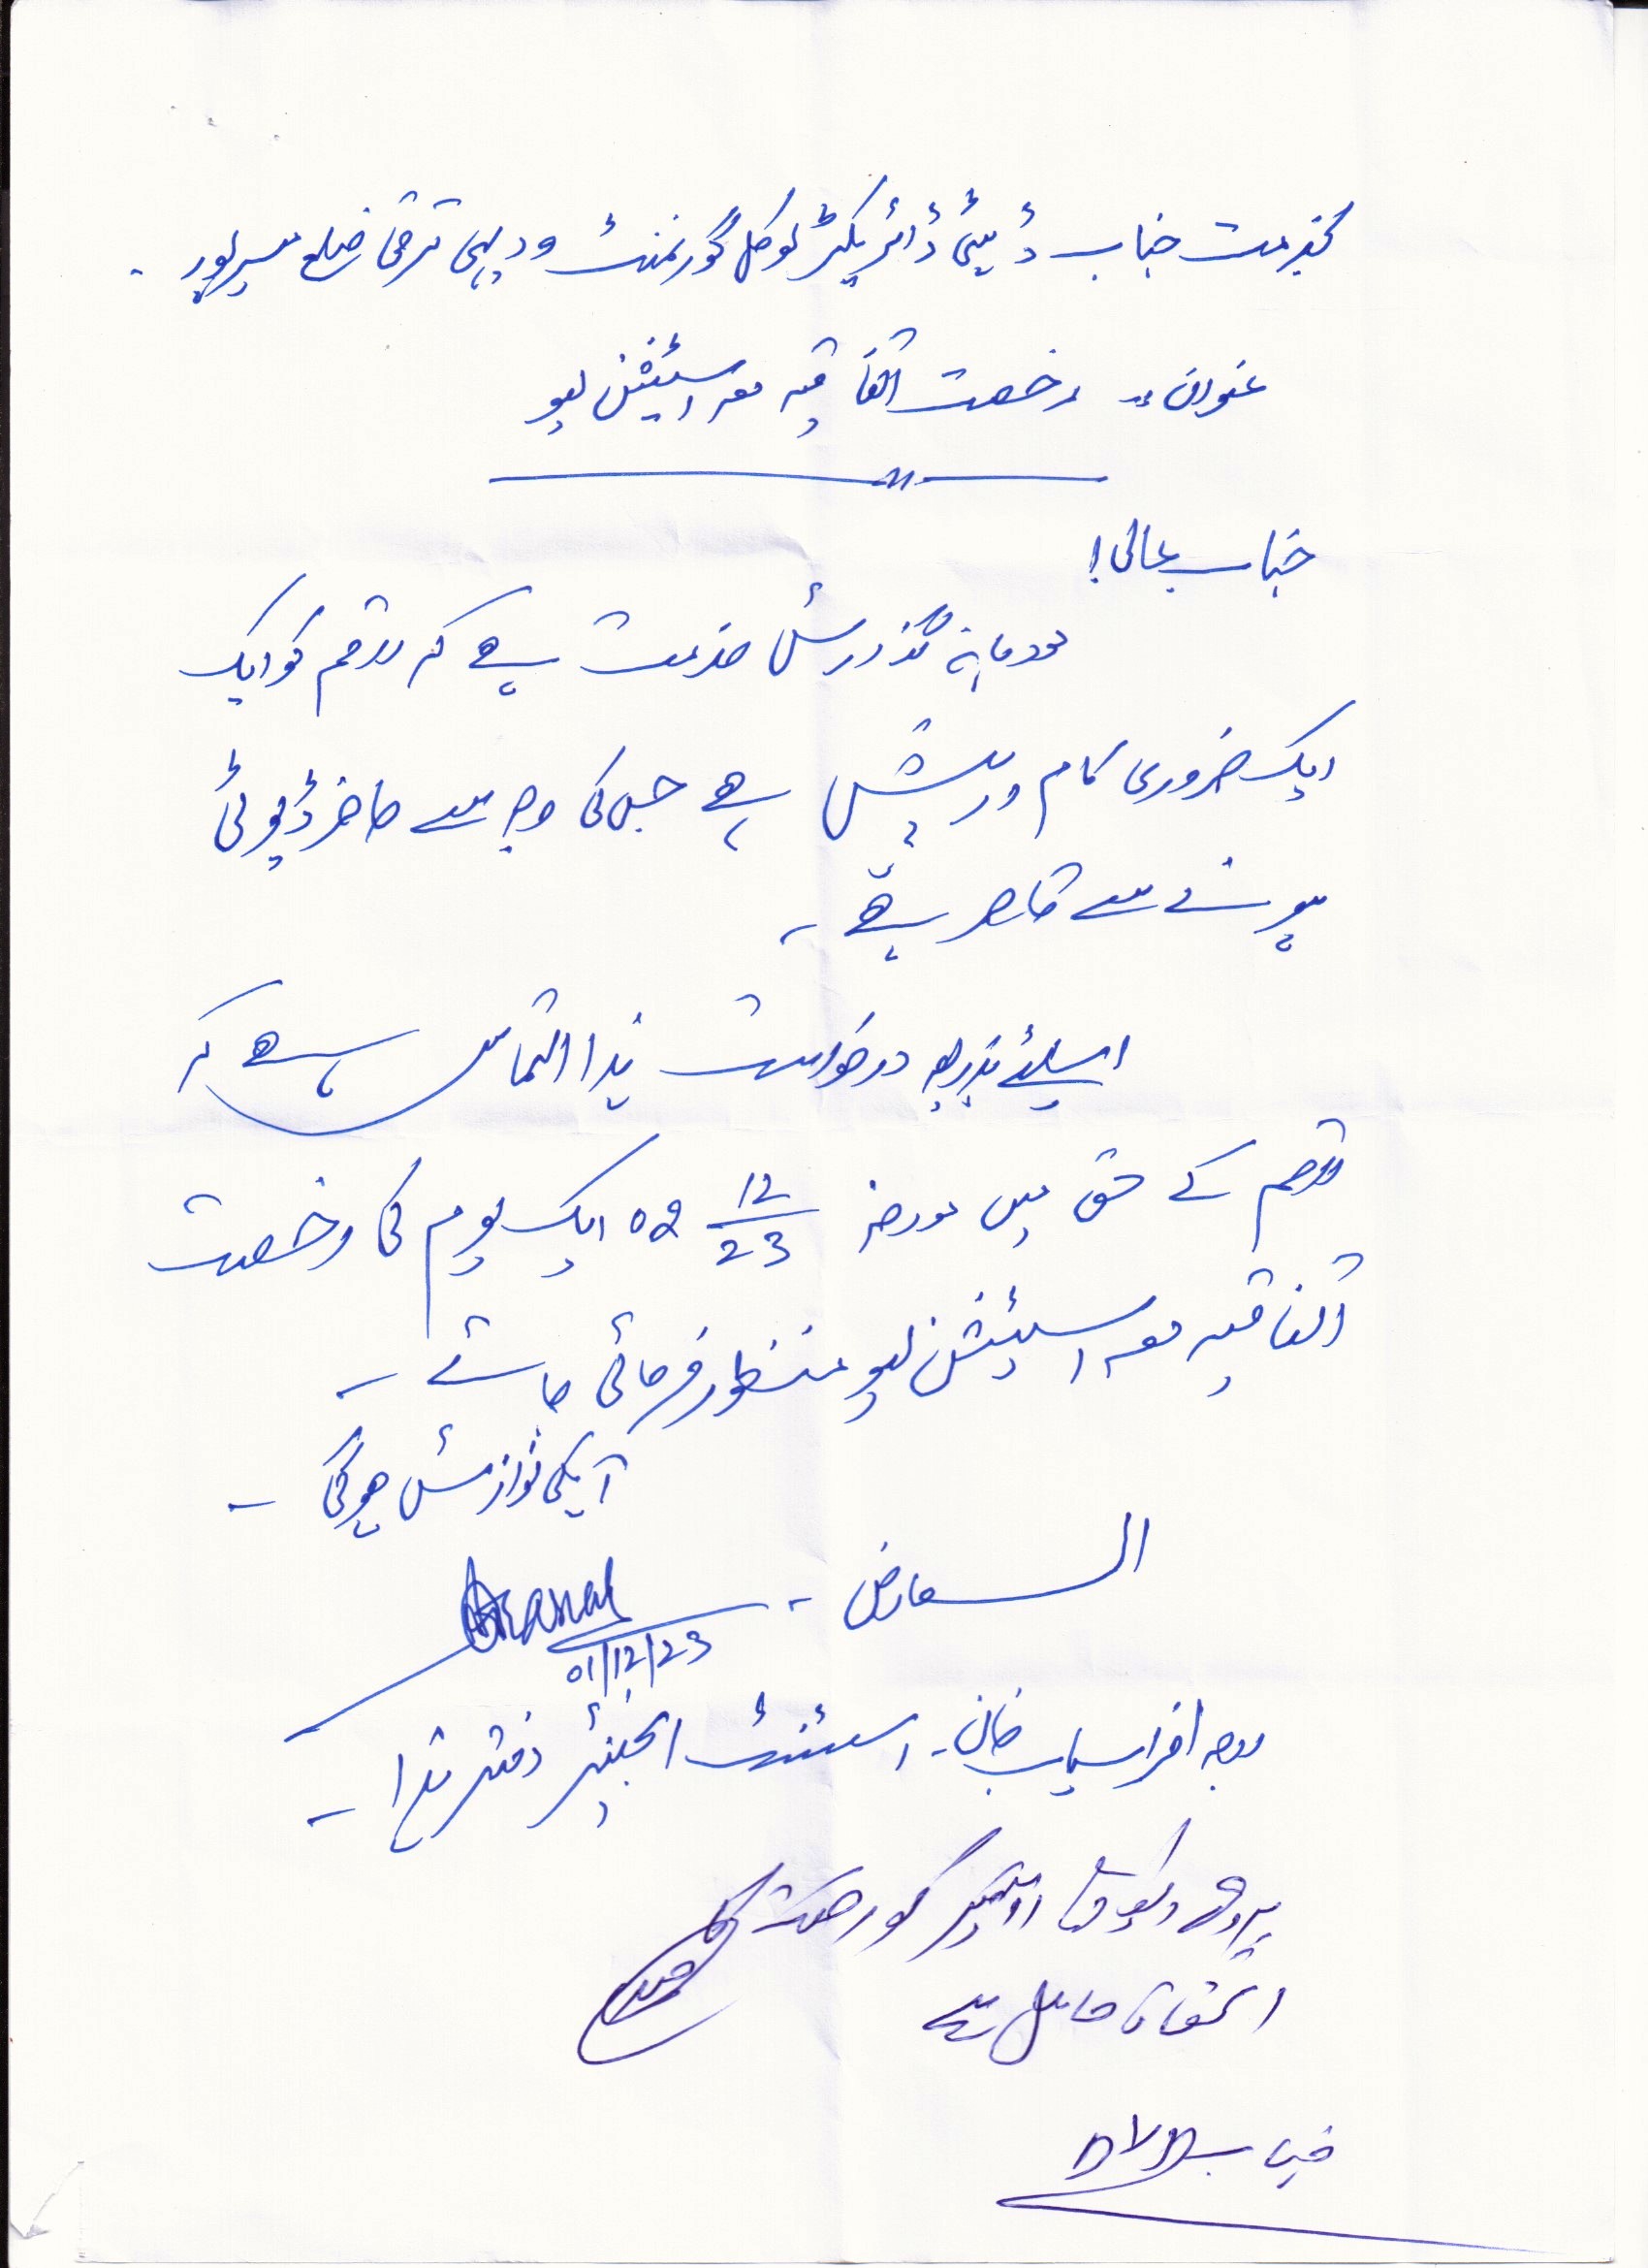 بخدمت جناب ڈپٹی ڈائریکٹر لوکل گورنمنٹ و دیہی ترقی ضلع میرپور ۔
عنوان :۔ رخصت اتفاقیہ معہ اسٹیشن لیو
جناب عالی !
مودبانہ گذارش خدمت ہے کہ راقم کو ایک
ایک ضروری کام درپیش ہے جس کی وجہ سے حاضر ڈیوٹی
ہونے سے قاصر ہے ۔
اسلیئے بذریعہ درخواست ہذا التماس ہے کہ
راقم کے حق میں مورخہ 02 12/23 ایک یوم کی رخصت
اتفاقیہ معہ اسٹیشن لیو منظور فرمائی جائے ۔
آپکی نوازش ہوگی ۔
العارض ۔
01/12/23
راجہ افراسیاب خان ۔ اسسٹنٹ انجینئر دفتر ہذا ۔